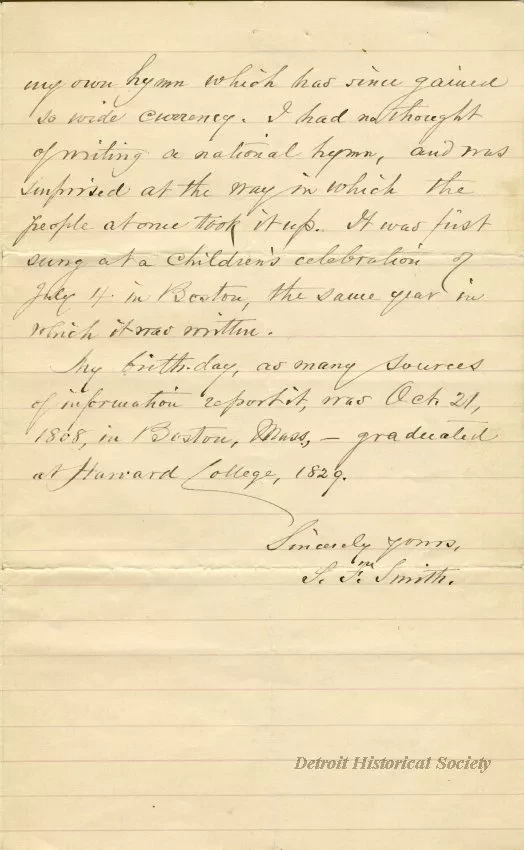 my own hymn which has since gained
so wide currency. I had no thought
of writing a national hymn, and was
surprised at the way in which the
people at once took it up. It was first
sung at a children's celebration of
July 4. in Boston, the same year in
which it was written.
My birth-day, as many sources
of information report it, was Oct. 21,
1808, in Boston, Mass, – graduated
at Harvard College, 1829.
Sincerely yours,
S. F. Smith.
Detroit Historical Society